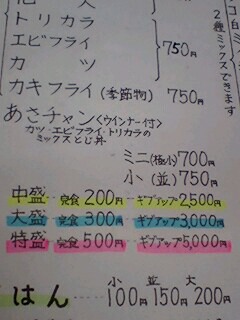 トリカラ
エビフライ
カツ
750円
カキフライ(季節物) 750円
2種ミックスできます
あさチャン〈ウインナー付〉
カツ・エビフライ・トリカラの
ミックスとじ丼
ミニ(極小)700円
小(並)750円
中盛 完食200円 ギブアップ2,500円
大盛 完食300円 ギブアップ3,000円
特盛 完食500円 ギブアップ5,000円
小 並 大
はん 100円 150円 200円